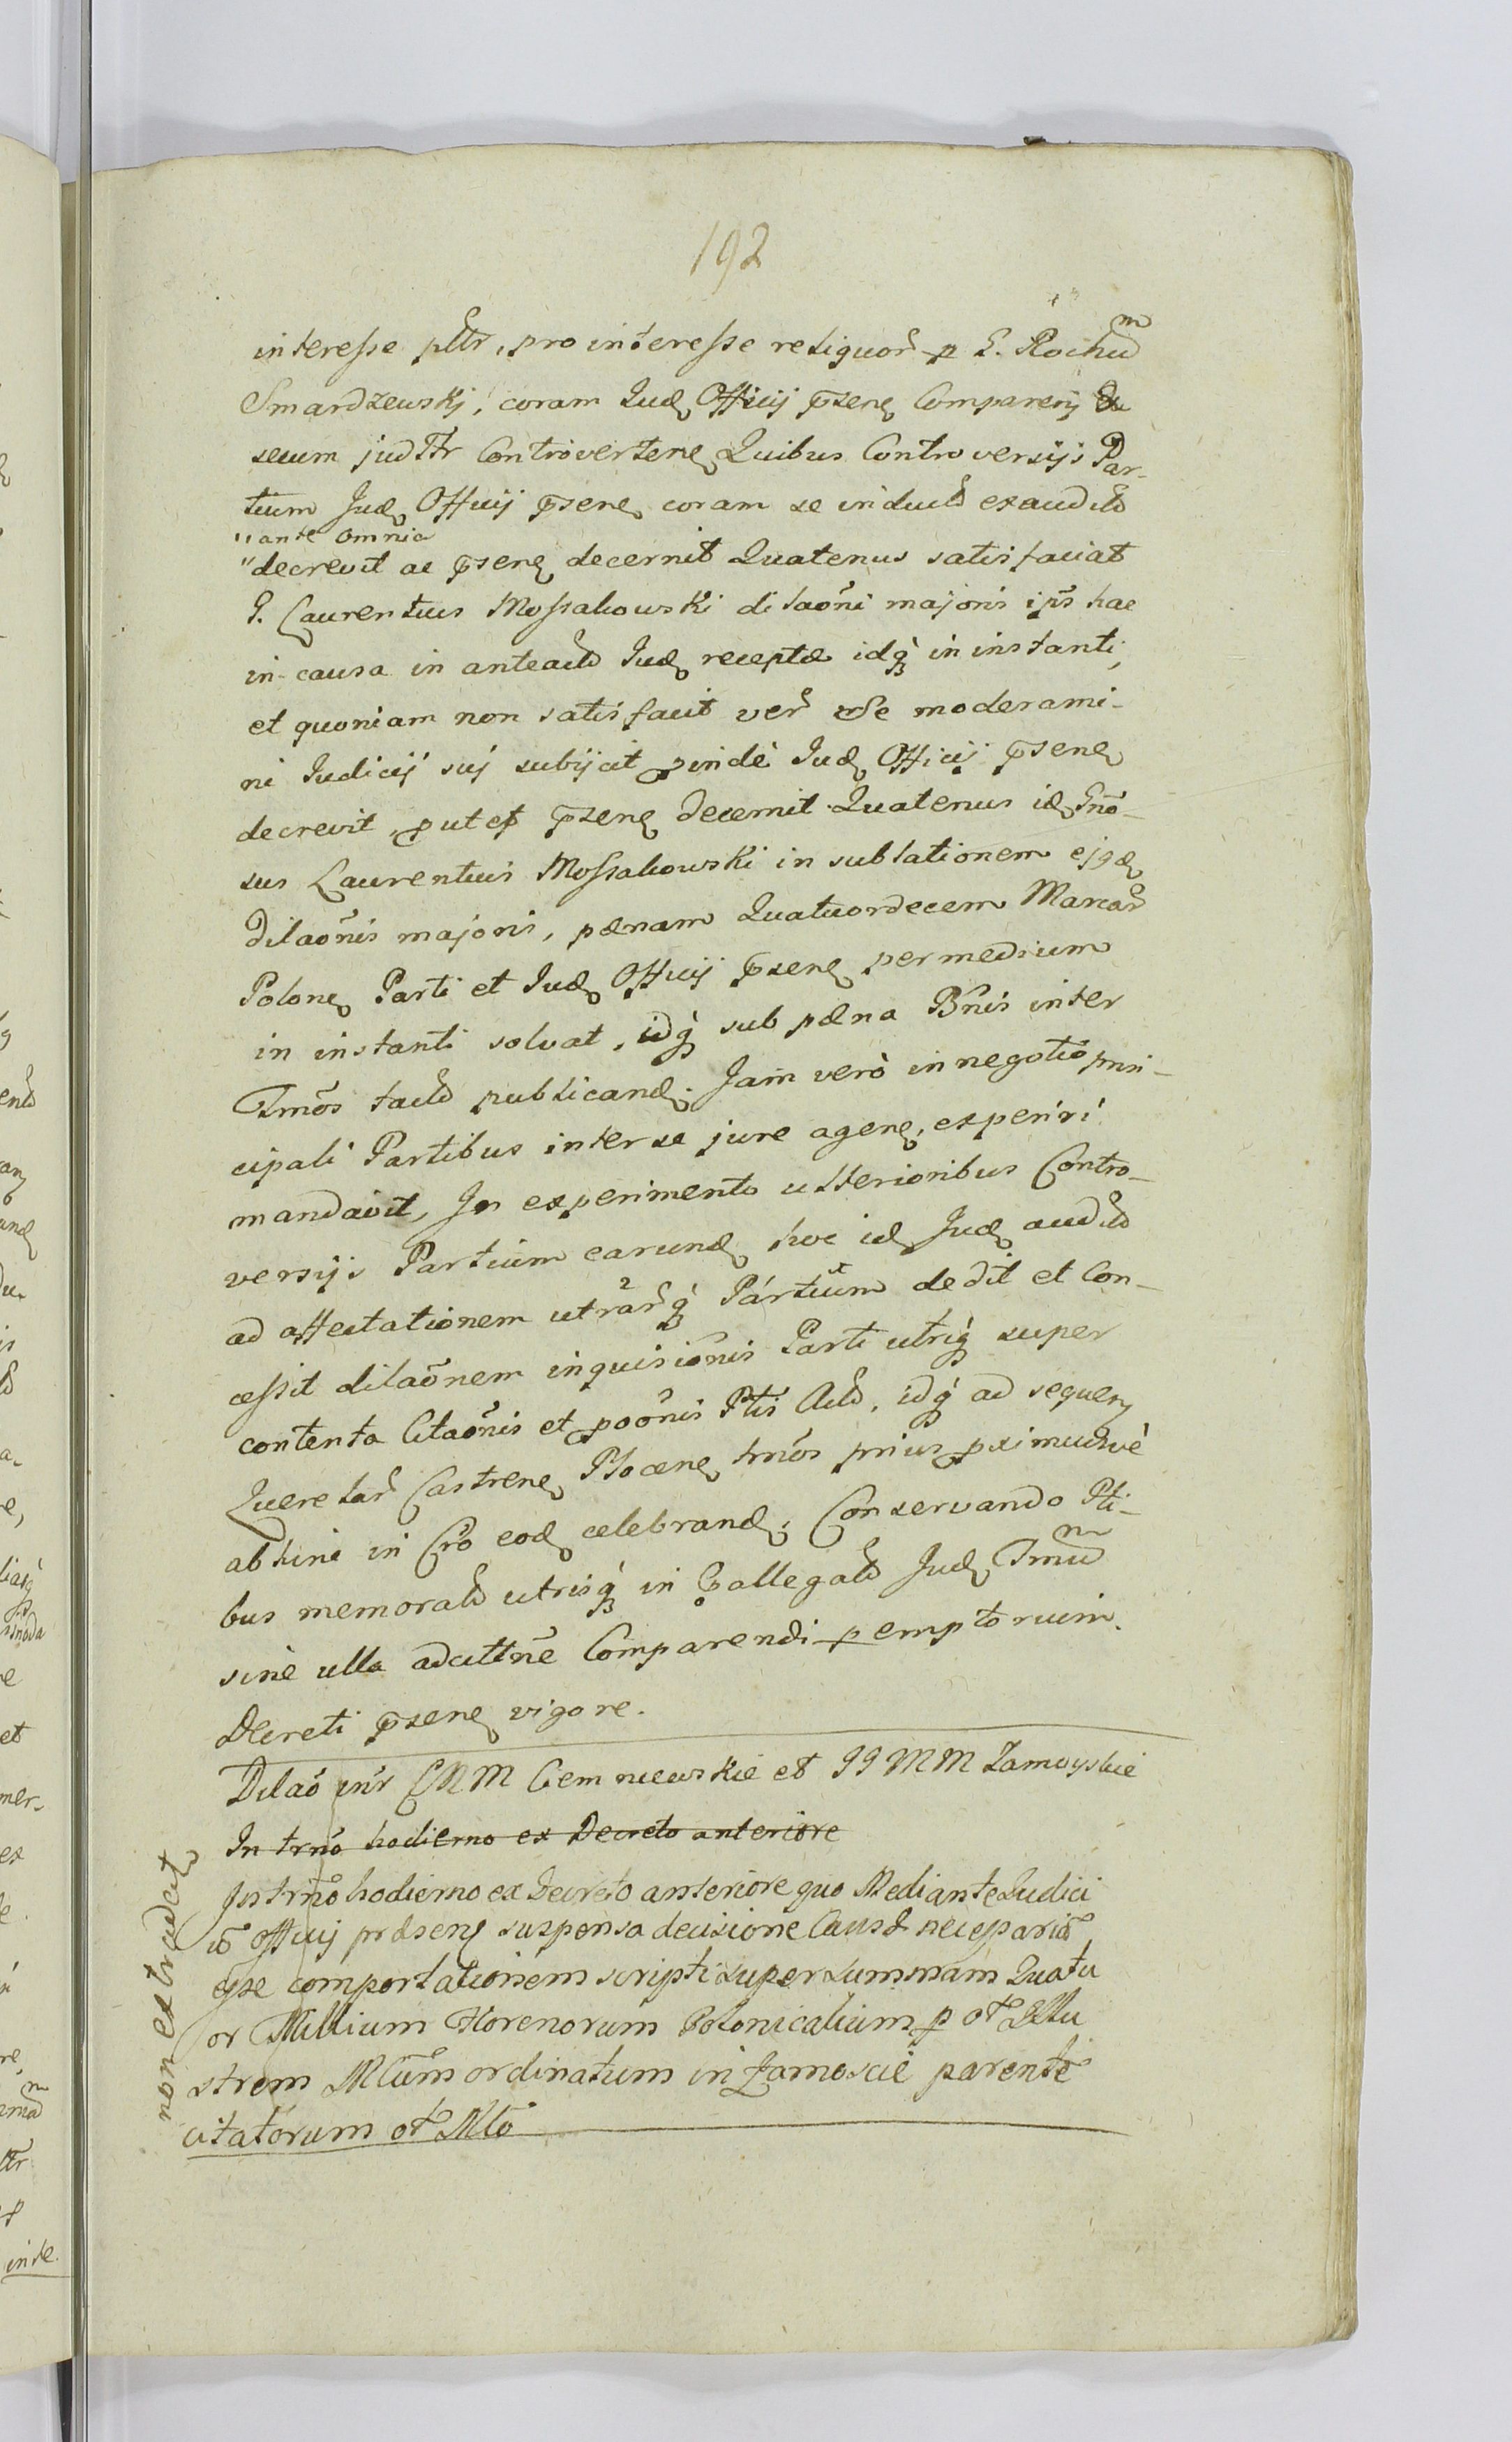 192
interesse pltr, pro interesse reliquor p G. Rochum
Smardzewski, coram Jud Officij psen Comparen &
secum judltr Controverten Quibus Controversijs Par-
tium Jud Officij psen coram se induct exaudit
"ante omnia
"decrevit ac psen decernit Quatenus satisfaciat
G. Laurentius Mossakowski dilaōni majoris ips hac
in causa in anteact Jud receptæ idq in instanti,
et quoniam non satisfacit ver se moderami-
ni Judicij sui subijcit pinde Jud Officij psen
decrevit, put et psen decernit Quatenus id Gnō-
sus Laurentius Mossakowski in sublationem ejqd
dilaōnis majoris, pænam Quatuordecem Marcar
Polon Parti et Jud Officij psen per medium
in instanti solvat, idq sub pæna Bnis inter
Tmōs tact publicand. Jam verò in negotio prin-
cipali Partibus inter se jure agere, experiri
mandavit, In experimento ulterioribus Contro-
versijs Partium earund hoc id Jud audit
ad affectationem utrarq Partium dedit et Con-
cessit dilaōnem inquisiōnis Parti utriq super
contenta Citaōnis et ppoōnis Ptis Act, idq ad sequen
Querelar Castren Plocen tmōs prius pximusvè
abhinc in Cro eod celebrand. Conservando Pti-
bus memorat utrisq in pallegat Jud Tmum
sine ulla adcittnē Comparendi p emptorium.
Decreti psen vigore.
Dilaō inr GNM Ciemniewskie et JJ MM Zamoyskie
In trnō hodierno ex Decreto anteriore
In trmō hodierno ex Decreto anteriore quo Mediante Judici
ū Officij præsen suspensa decisione Causæ necessariā
esse comportationem scripti super summam Quatu
or Millium Florenorum Polonicalium p ol Illu
strem Mlum ordinatum in Zamoscie parentē
citatorum ol Mtō
non extradit